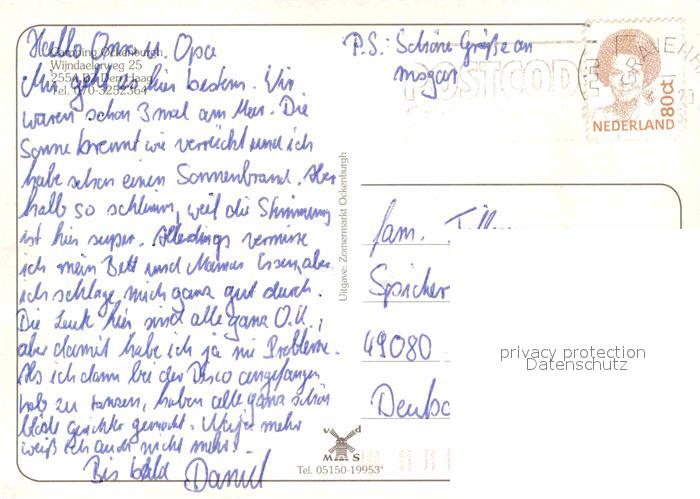 Hallo Oma u. Opa
Camping Ockenburgh
Wijndaelerweg 25
2554 BZ Den Haag
Tel. 070-3252364
Mir geht es hier bestens. Wir
waren schon 3 mal am Meer. Die
Sonne brennt wie verrückt und ich
habe schon einen Sonnenbrand. Aber
halb so schlimm, weil die Stimmung
ist hier super. Allerdings vermisse
ich mein Bett und Mamas Essen, aber
ich schlage mich ganz gut durch.
Die Leute hier sind alle ganz O.K.,
aber damit habe ich ja nie Probleme.
Als ich dann bei der Disco angefangen
hab zu tanzen, haben alle ganz schön
blöde gesichter gemacht. Naja mehr
weiß ich auch nicht mehr!
Bis bald Daniel
P.S.: Schöne Grüße an
POSTCODE
NEDERLAND 80ct
Uitgave: Zomermarkt Ockenburgh
fam.
Spicher
49080
Deutsc
privacy protection
Datenschutz
v d
M S
Tel. 05150-19953*